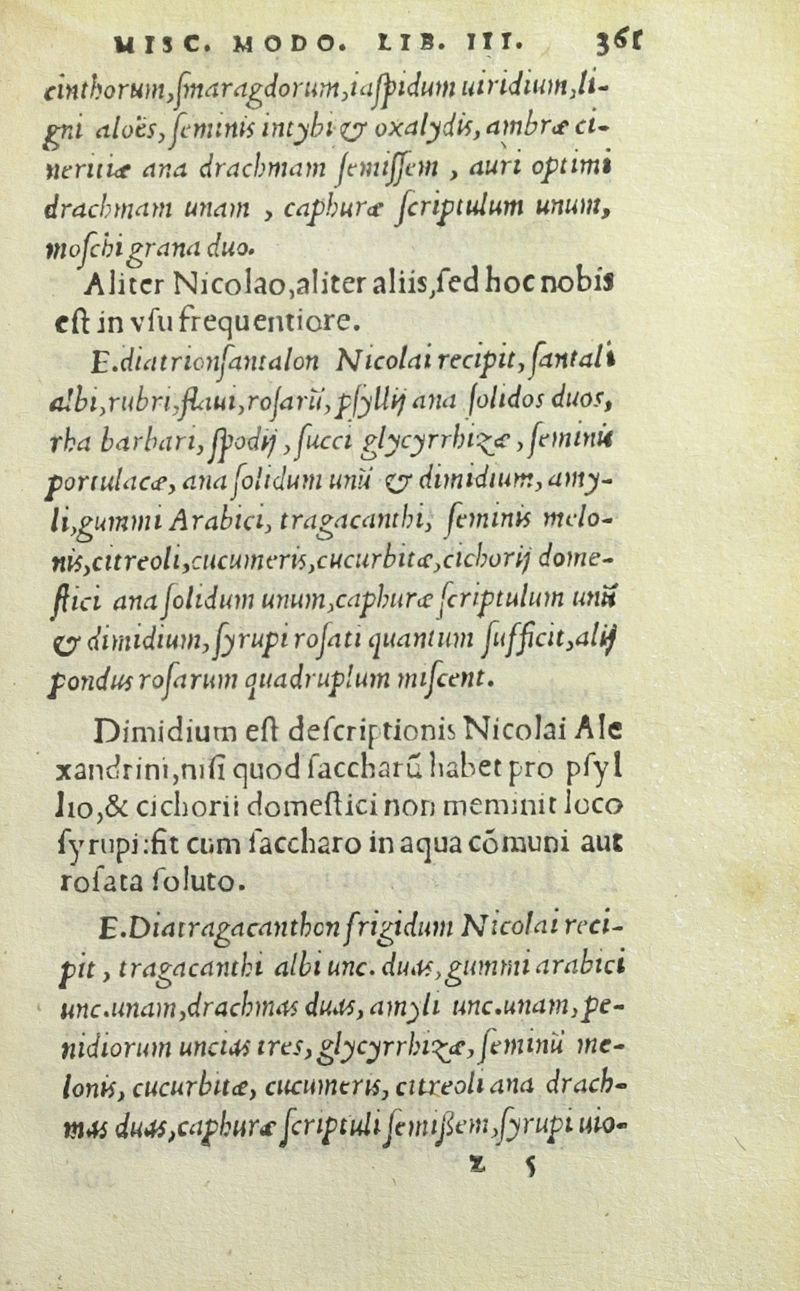 MISC. MODO. LIB. III. 361
cinthorum,ſmaragdorum,iaſpidum uiridium,li-
gni aloës, ſeminis intybi & oxalydis, ambræ ci-
neritiæ ana drachmam ſemiſſem , auri optimi
drachmam unam , caphuræ ſcriptulum unum,
moſchi grana duo.
Aliter Nicolao,aliter aliis,ſed hoc nobis
eſt in vſu frequentiore.
E.diatrionſantalon Nicolai recipit, ſantali
albi,rubri,flaui,roſarũ, pſyllij ana ſolidos duos,
rha barbari, ſpodij , ſucci glycyrrhizæ , ſeminis
portulacæ, ana ſolidum unũ & dimidium, amy-
li,gummi Arabici, tragacanthi, ſeminis melo-
nis,citreoli,cucumeris,cucurbitæ,cichorij dome-
ſtici ana ſolidum unum,caphuræ ſcriptulum unũ
& dimidium, ſyrupi roſati quantum ſufficit,alij
pondus roſarum quadruplum miſcent.
Dimidium eſt deſcriptionis Nicolai Ale
xandrini,niſi quod ſaccharũ habet pro pſyl
lio,& cichorii domeſtici non meminit loco
ſyrupi:fit cum ſaccharo in aqua cõmuni aut
roſata ſoluto.
E.Diatragacanthon frigidum Nicolai reci-
pit , tragacanthi albi unc. duas, gummi arabici
unc.unam,drachmas duas, amyli unc.unam, pe-
nidiorum uncias tres, glycyrrhizæ, ſeminũ me-
lonis, cucurbitæ, cucumeris, citreoli ana drach-
mas duas,caphuræ ſcriptuli ſemißem,ſyrupi uio-
z 5